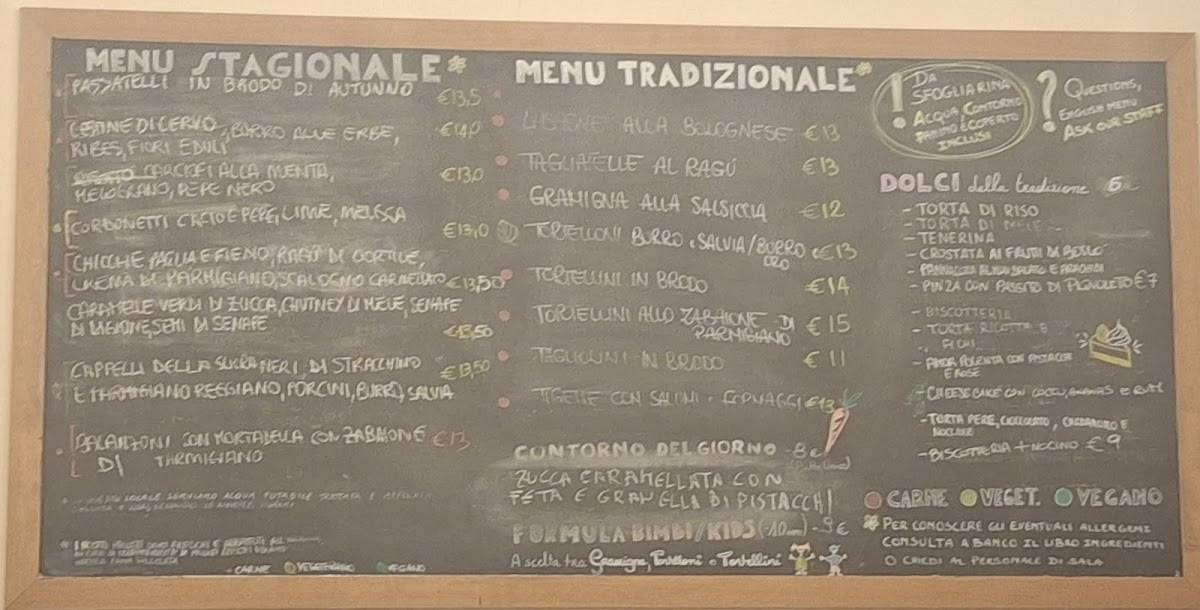 MENU STAGIONALE*
PASSATELLI IN BRODO DI AUTUNNO €13,5
DI CERVO, BURRO ALLE ERBE, €14,0
RIBES, FIORI EDULI
CARCIOFI ALLA MENTA, €13,0
MELOGRANO, PEPE NERO
CACIO E PEPE, LIME, MELISSA €13,0
CHICCHE PAGLIA E FIENO, RAGÙ DI CORTILE,
CREMA DI PARMIGIANO, SCALOGNO €13,50
CARAMELLE VERDI DI ZUCCA, CHUTNEY DI MELE, SENAPE
DI DIGIONE, SEMI DI SENAPE €13,50
CAPPELLI DELLA NERI DI STRACCHINO €13,50
E PARMIGIANO REGGIANO, PORCINI, BURRO, SALVIA
BALANZONI CON MORTADELLA CON ZABAIONE €13
DI PARMIGIANO
- CARNE VEGETARIANO VEGANO
MENU TRADIZIONALE*
LASAGNE ALLA BOLOGNESE €13
TAGLIATELLE AL RAGÙ €13
GRAMIGNA ALLA SALSICCIA €12
TORTELLONI BURRO e SALVIA/BURRO €13
ORO
TORTELLINI IN BRODO €14
TORTELLINI ALLO ZABAIONE DI €15
PARMIGIANO
TAGLIOLINI IN BRODO €11
TIGELLE CON SALUMI e FORMAGGI €13
CONTORNO DEL GIORNO - 8€
ZUCCA CARAMELLATA CON
FETA E GRANELLA DI PISTACCHI
FORMULA BIMBI/KIDS (-10 anni) - 9€
A scelta tra Gramigna, Tortelloni o Tortellini
! DA
SFOGLIARINA
ACQUA, CONTORNO
PANINO E COPERTO
INCLUSI
? QUESTIONS,
ENGLISH MENU
ASK OUR STAFF
DOLCI della tradizione 6
- TORTA DI RISO
- TORTA DI MELE
- TENERINA
- CROSTATA AI FRUTTI DI BOSCO
- PINZA CON PASSITO DI PIGNOLETO €7
- BISCOTTERIA
- TORTA RICOTTA E
FICHI
- POLENTA CON PISTACCHI
E ROSE
- CHEESECAKE CON COCCO, ANANAS E RUM
- TORTA PERE, CIOCCOLATO, CARDAMOMO E
NOCCIOLE
- BISCOTTERIA + NOCINO €9
CARNE VEGET. VEGANO
* PER CONOSCERE GLI EVENTUALI ALLERGENI
CONSULTA A BANCO IL LIBRO INGREDIENTI
O CHIEDI AL PERSONALE DI SALA